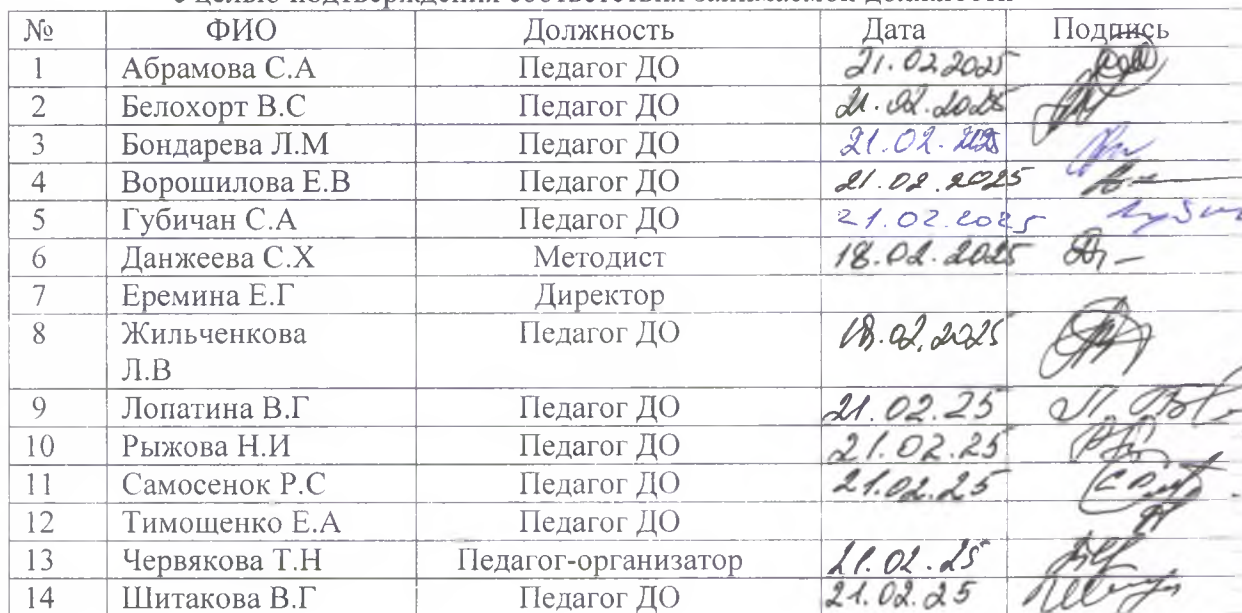 с целью подтверждения соответствия занимаемой должности
№ ФИО Должность Дата Подпись
1 Абрамова С.А Педагог ДО 21.02.2025
2 Белохорт В.С Педагог ДО 21.02.2025
3 Бондарева Л.М Педагог ДО 21.02.2025
4 Ворошилова Е.В Педагог ДО 21.02.2025
5 Губичан С.А Педагог ДО 21.02.2025
6 Данжеева С.Х Методист 18.02.2025
7 Еремина Е.Г Директор
8 Жильченкова Педагог ДО 18.02.2025
Л.В
9 Лопатина В.Г Педагог ДО 21.02.25
10 Рыжова Н.И Педагог ДО 21.02.25
11 Самосенок Р.С Педагог ДО 21.02.25
12 Тимощенко Е.А Педагог ДО
13 Червякова Т.Н Педагог-организатор 21.02.25
14 Шитакова В.Г Педагог ДО 21.02.25